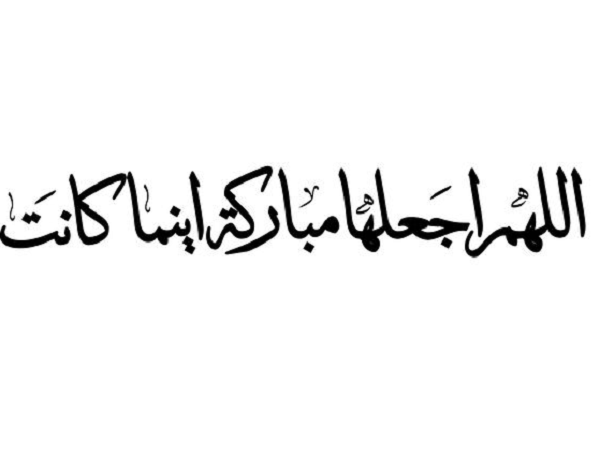 اللهم اجعلها مباركة اينما كانت